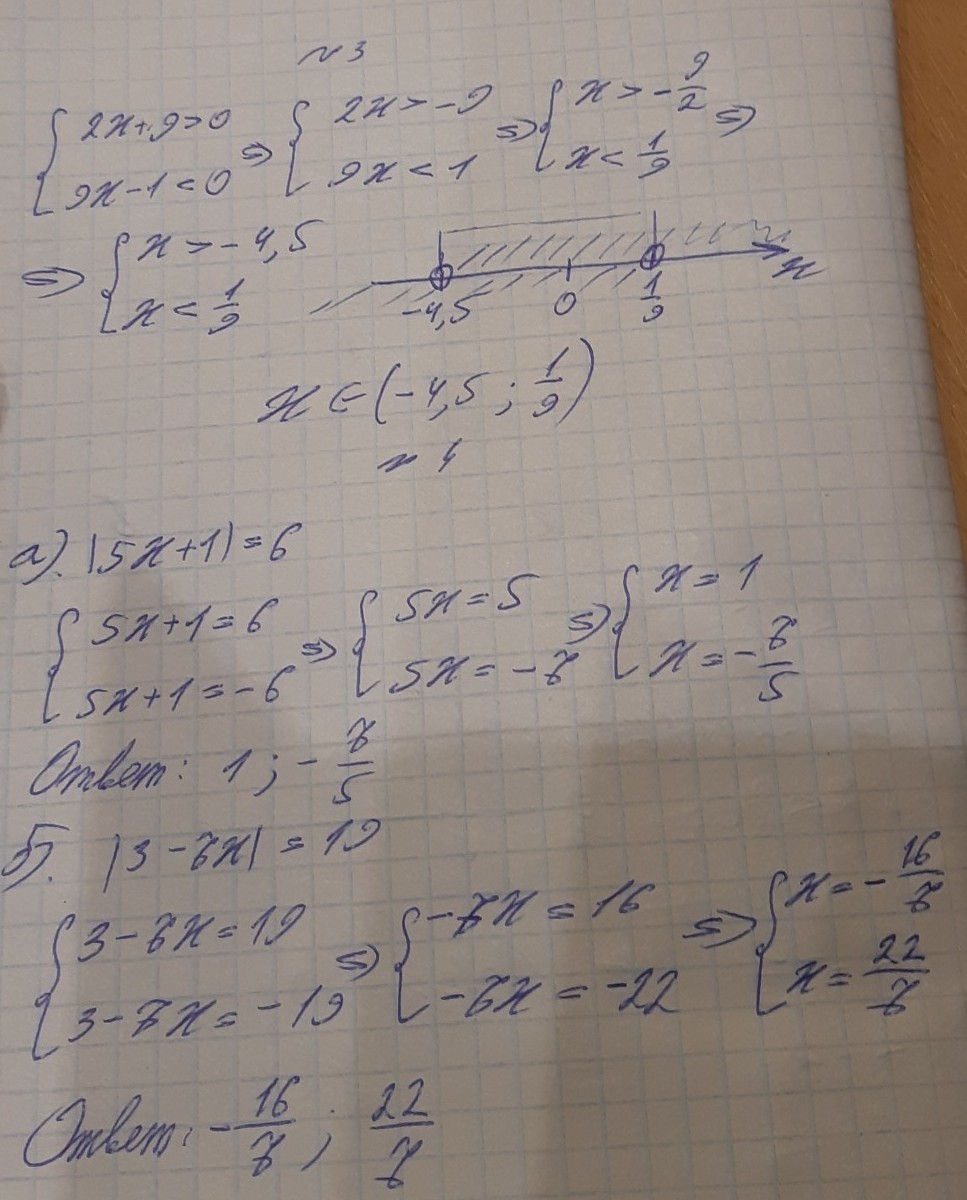 № 3
{ 2x+9>0 ; 9x-1<0 ⇒ { 2x>-9 ; 9x<1 ⇒ { x>-9/2 ; x<1/9 ⇒
⇒ { x>-4,5 ; x<1/9
-4,5 0 1/9 x
x∈(-4,5; 1/9)
№ 4
а). |5x+1|=6
{ 5x+1=6 ; 5x+1=-6 ⇒ { 5x=5 ; 5x=-7 ⇒ { x=1 ; x=-7/5
Ответ: 1; -7/5
б). |3-7x|=19
{ 3-7x=19 ; 3-7x=-19 ⇒ { -7x=16 ; -7x=-22 ⇒ { x=-16/7 ; x=22/7
Ответ: -16/7; 22/7